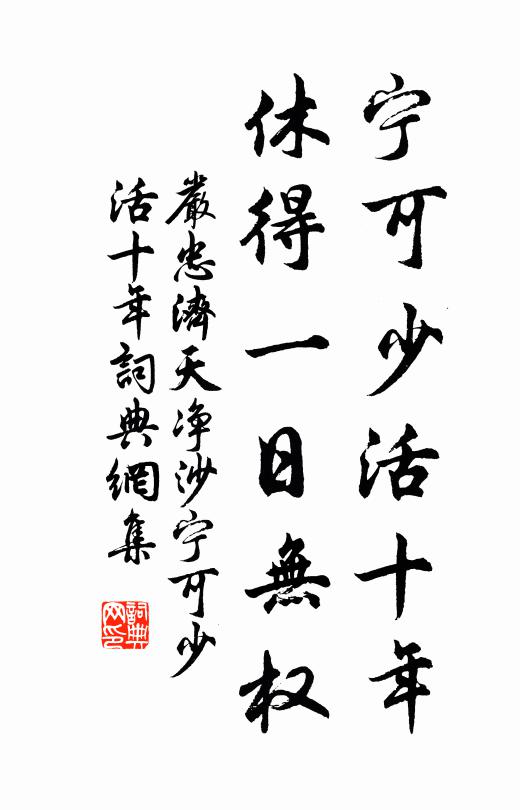 宁可少活十年
休得一日無权
嚴忠濟天净沙宁可少
活十年詞典網集
詞典
网印